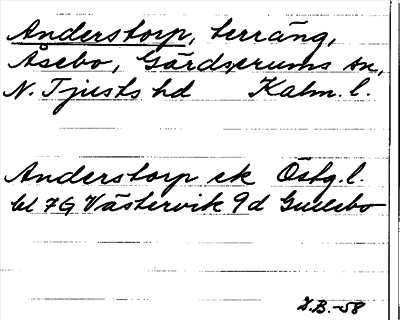 Anderstorp, terräng,
Åsebo, Gärdserums sn,
N. Tjusts hd Kalm. l.
Anderstorp ek Östg. l.
bl 7G Västervik 9d Gullebo
I.B.-58